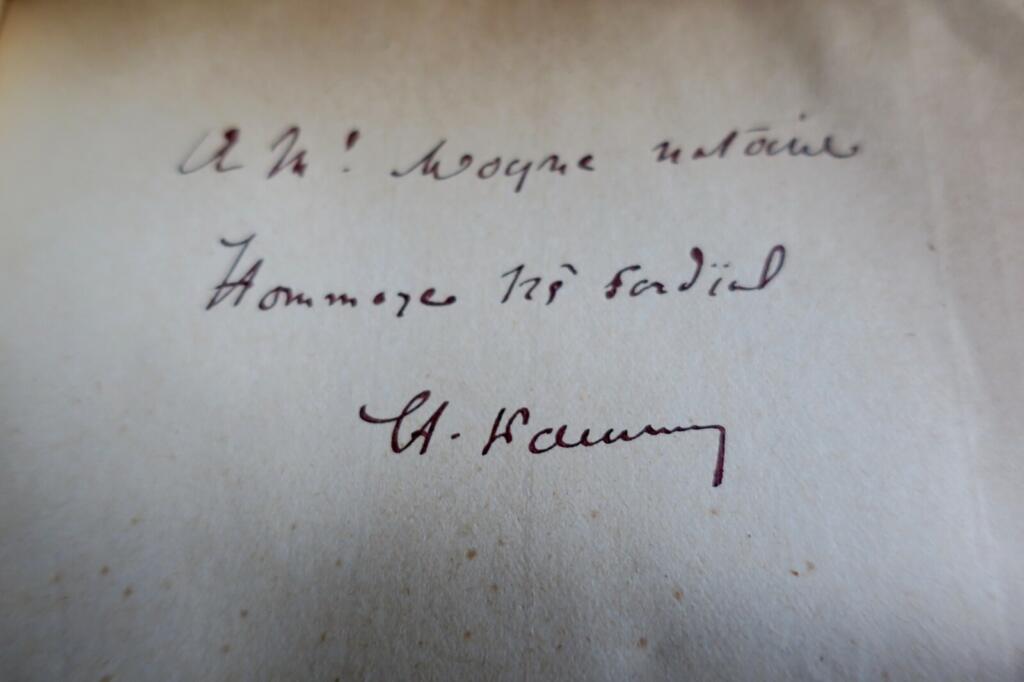 A Mr Moyne notaire
Hommage très cordial